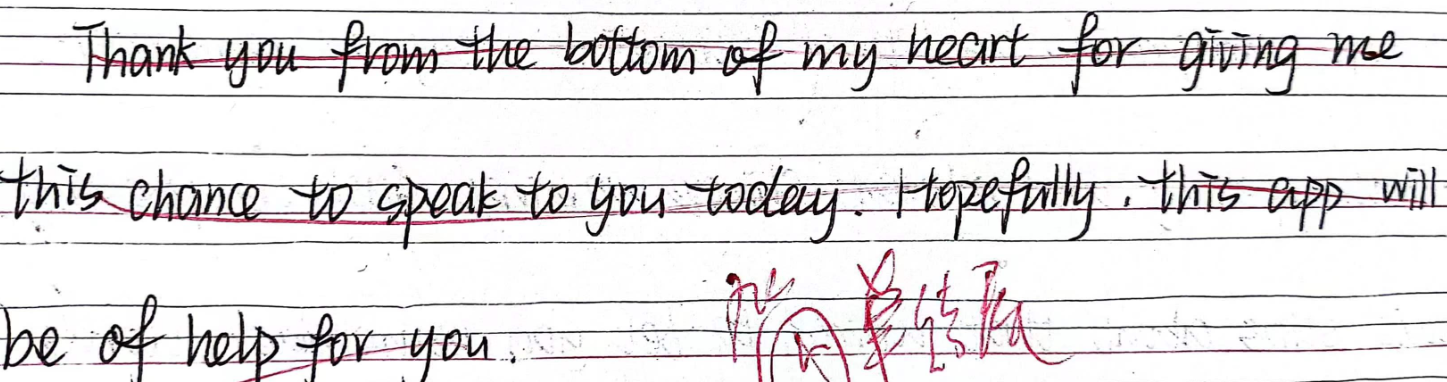 Thank you from the bottom of my heart for giving me
this chance to speak to you today. Hopefully, this app will
be of help for you.